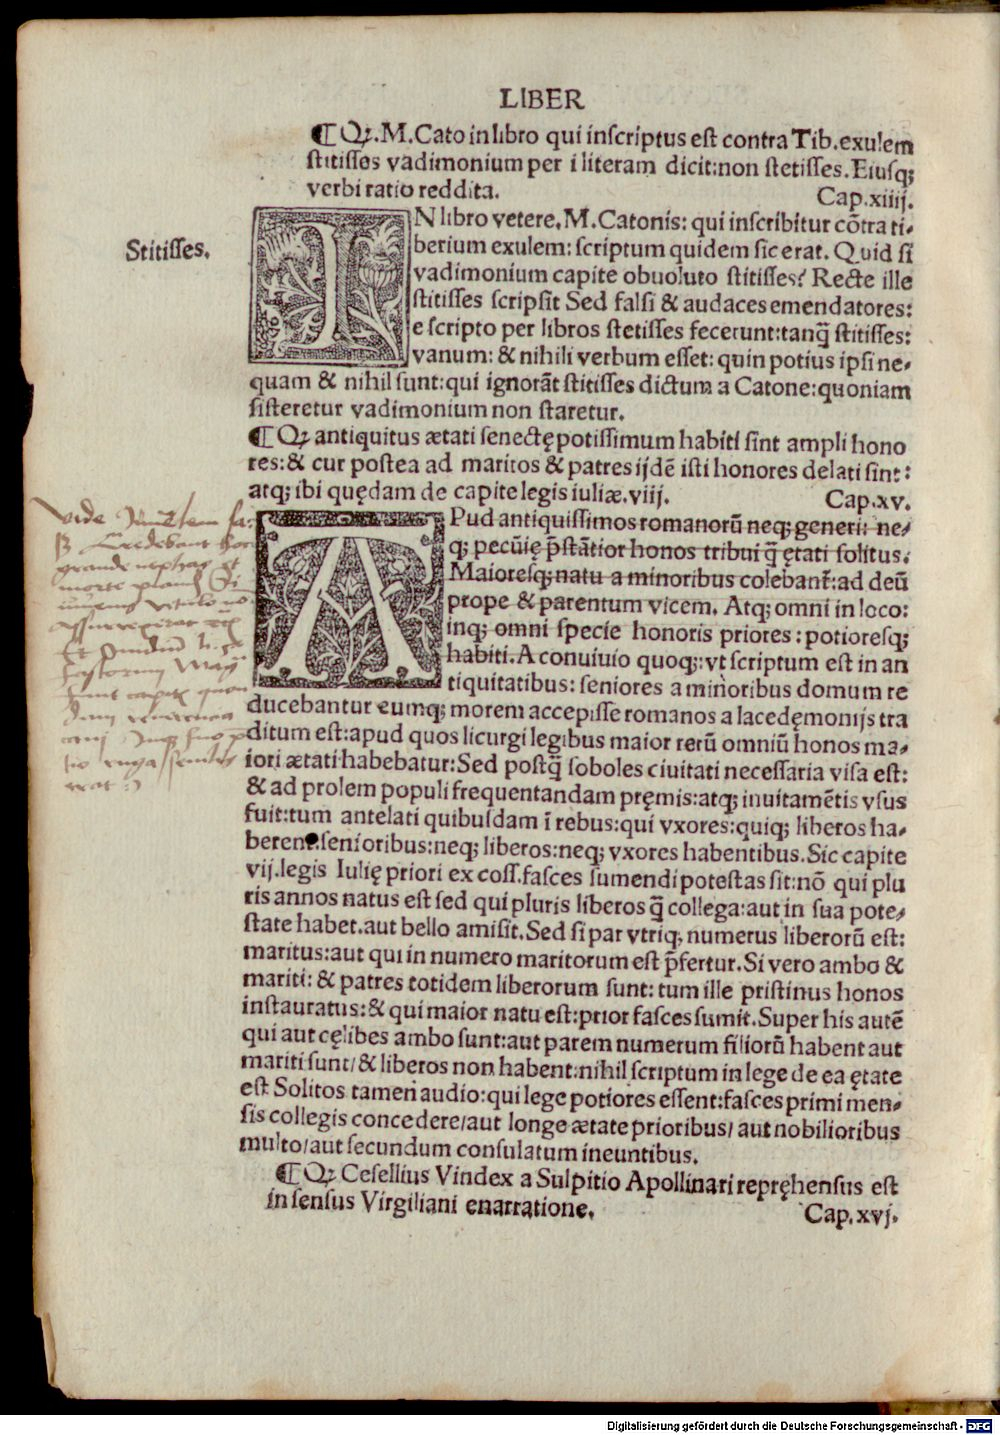 LIBER
¶ Qꝫ.M.Cato in libro qui inscriptus est contra Tib.exulem
stitisses vadimonium per i literam dicit:non stetisses.Eiusqꝫ
verbi ratio reddita. Cap.xiiij.
Stitisses.
IN libro vetere.M.Catonis: qui inscribitur cōtra ti-
berium exulem: scriptum quidem sic erat. Quid si
vadimonium capite obuoluto stitisses? Recte ille
stitisses scripsit Sed falsi & audaces emendatores:
e scripto per libros stetisses fecerunt:tanq̄ stitisses:
vanum: & nihili verbum esset: quin potius ipsi ne-
quam & nihil sunt:qui ignorāt stitisses dictum a Catone:quoniam
sisteretur vadimonium non staretur.
¶ Qꝫ antiquitus ætati senectę potissimum habiti sint ampli hono
res:& cur postea ad maritos & patres ijdē isti honores delati sint:
atqꝫ ibi quędam de capite legis iuliæ.viij. Cap.xv.
APud antiquissimos romanorū neqꝫ generi: ne-
qꝫ pecūię p̄stātior honos tribui q̄ ętati solitus.
Maioresqꝫ natu a minoribus colebant̄:ad deū
prope & parentum vicem. Atqꝫ omni in loco:
inqꝫ omni specie honoris priores: potioresqꝫ
habiti.A conuiuio quoqꝫ:vt scriptum est in an
tiquitatibus: seniores a minoribus domum re
ducebantur eumqꝫ morem accepisse romanos a lacedęmonijs tra
ditum est:apud quos licurgi legibus maior rerū omniū honos ma-
iori ætati habebatur:Sed postq̄ soboles ciuitati necessaria visa est:
& ad prolem populi frequentandam pręmis:atqꝫ inuitamētis vsus
fuit:tum antelati quibusdam ī rebus:qui vxores:quiqꝫ liberos ha-
berent senioribus:neqꝫ liberos:neqꝫ vxores habentibus.Sic capite
vij.legis Iulię priori ex coss.fasces sumendi potestas sit:nō qui plu
ris annos natus est sed qui pluris liberos q̄ collega:aut in sua pote-
state habet.aut bello amisit.Sed si par vtriqꝫ numerus liberorū est:
maritus:aut qui in numero maritorum est p̄fertur.Si vero ambo &
mariti: & patres totidem liberorum sunt: tum ille pristinus honos
instauratus:& qui maior natu est:prior fasces sumit.Super his autē
qui aut cęlibes ambo sunt:aut parem numerum filiorū habent aut
mariti sunt/& liberos non habent:nihil scriptum in lege de ea ętate
est Solitos tamen audio:qui lege potiores essent:fasces primi men-
sis collegis concedere/aut longe ætate prioribus/ aut nobilioribus
multo/aut secundum consulatum ineuntibus.
¶ Qꝫ Cesellius Vindex a Sulpitio Apollinari repręhensus est
in sensus Virgiliani enarratione. Cap.xvj.
vide
Credebant hoc
grande nephas et
morte
Digitalisierung gefördert durch die Deutsche Forschungsgemeinschaft - DFG